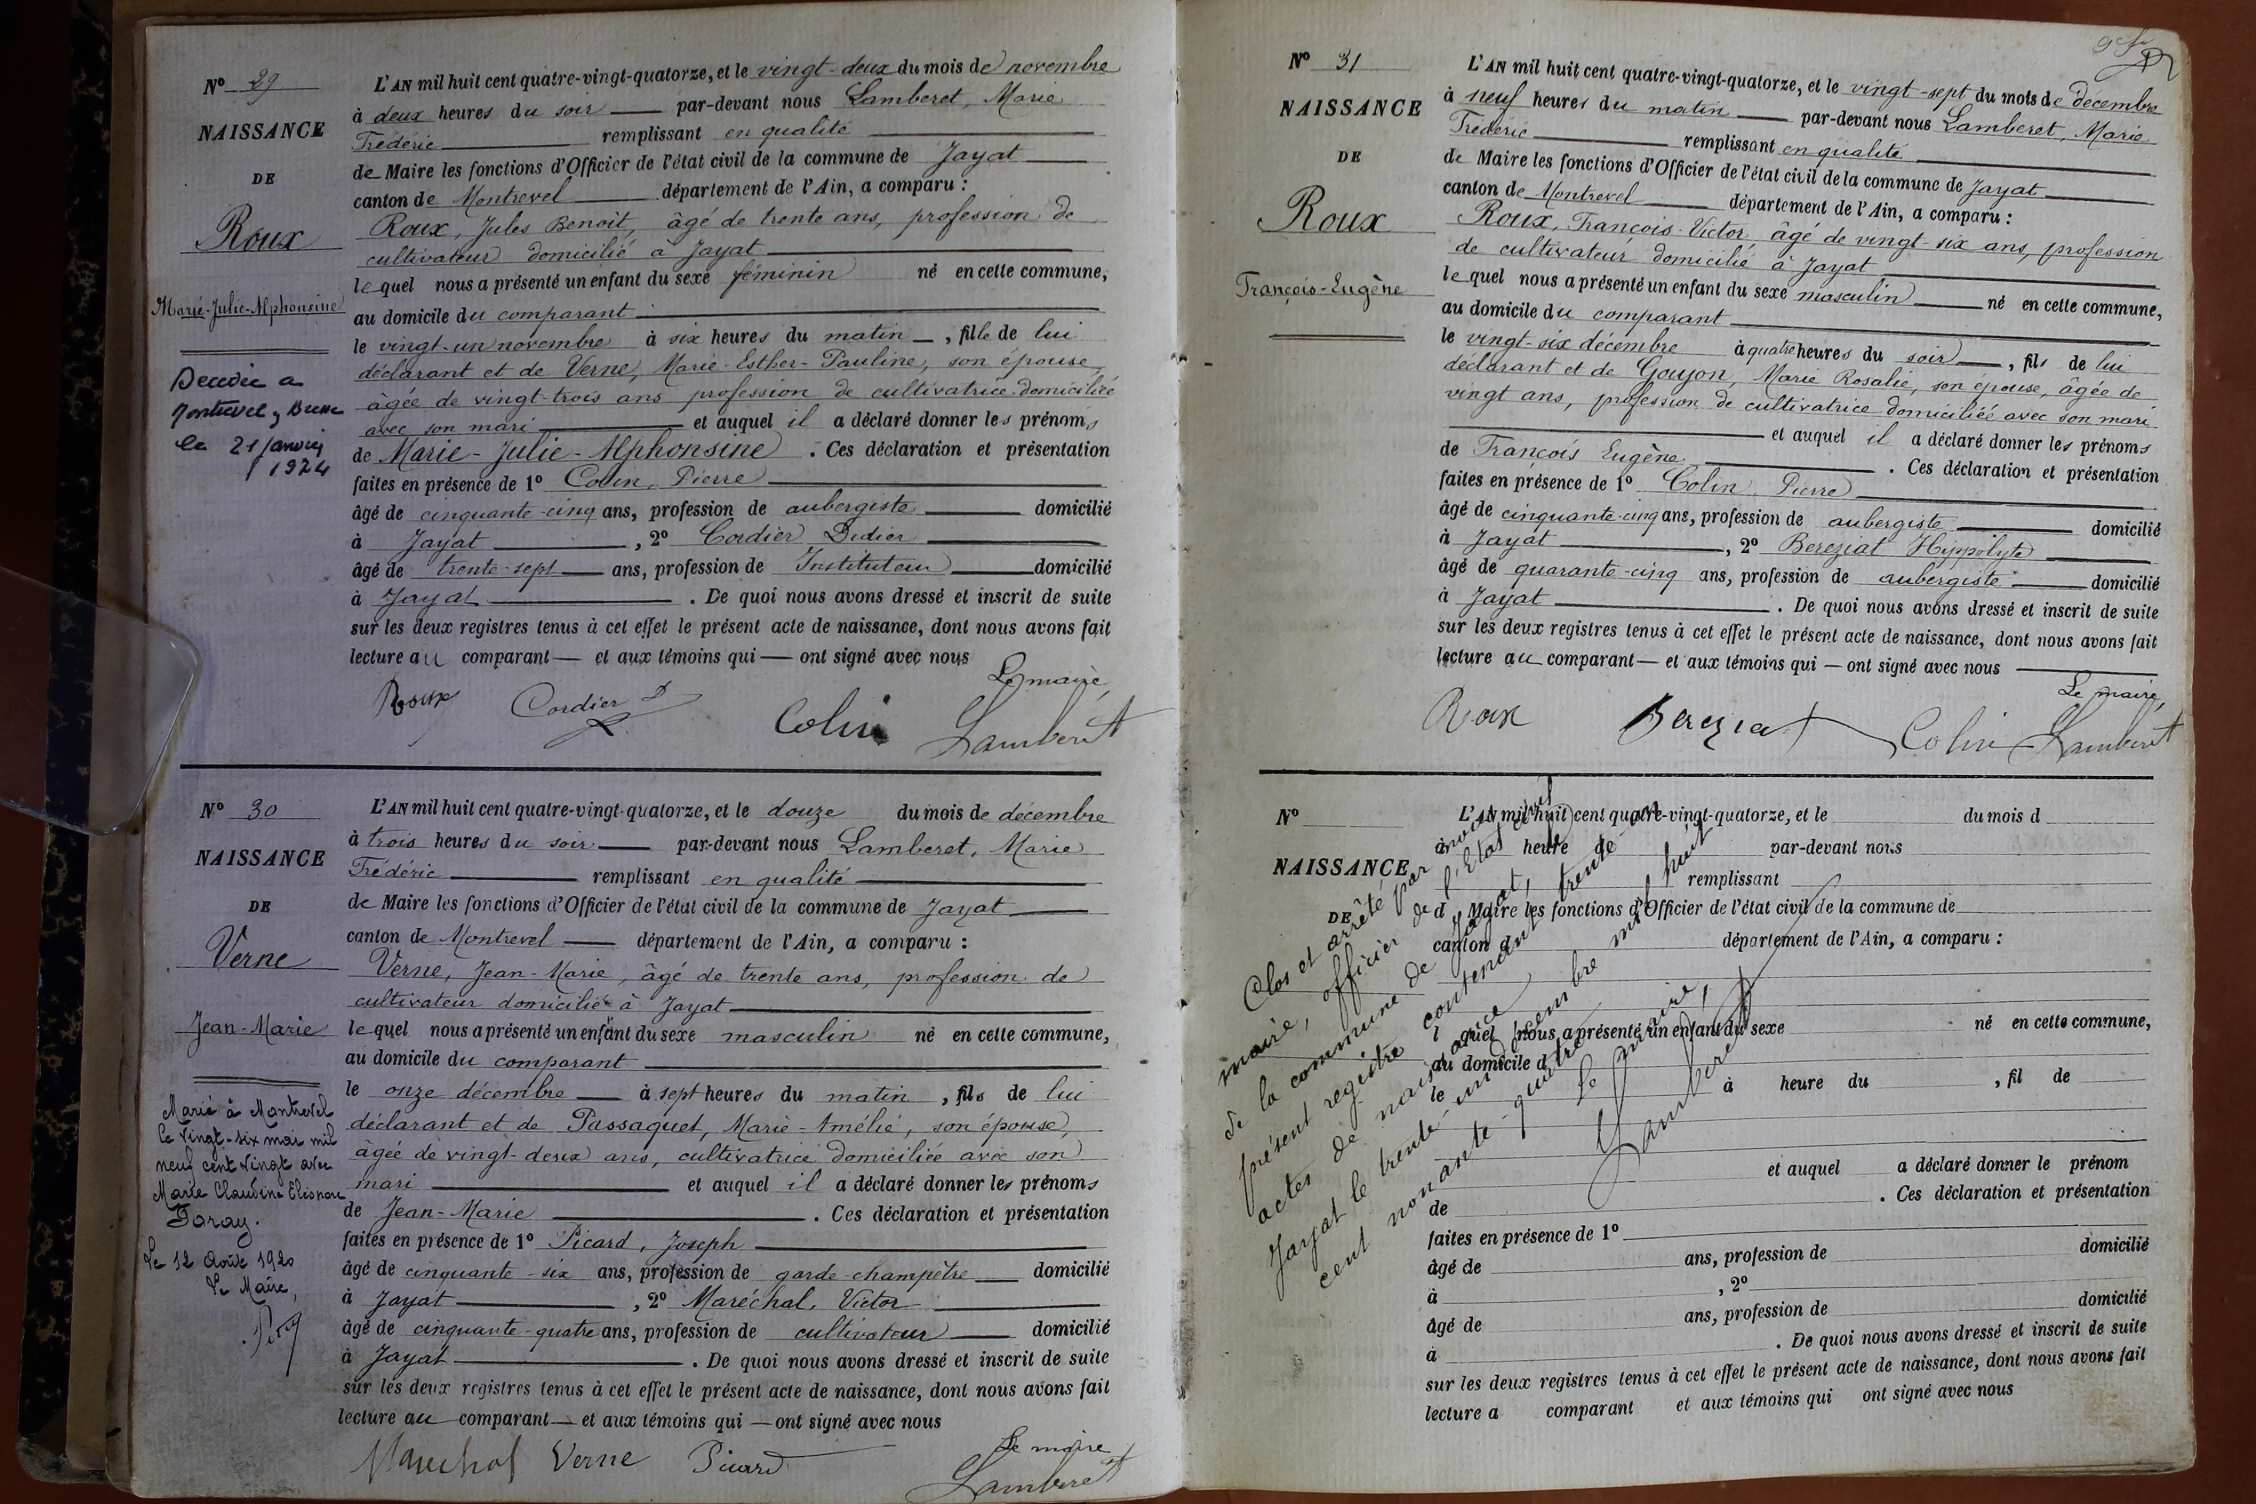 N° 29
NAISSANCE
DE
Roux
Marie-Julie-Alphonsine
Decedée a
Montrevel, Bresse
le 21 Janvier
1924
L'AN mil huit cent quatre-vingt-quatorze, et le vingt-deux du mois de novembre
à deux heures du soir par-devant nous Lamberet, Marie
Frédéric remplissant en qualité
de Maire les fonctions d'Officier de l'état civil de la commune de Jayat
canton de Montrevel département de l'Ain, a comparu :
Roux, Jules Benoit, âgé de trente ans, profession de
cultivateur domicilié à Jayat
lequel nous a présenté un enfant du sexe féminin né en cette commune,
au domicile du comparant
le vingt-un novembre à six heures du matin, fille de lui
déclarant et de Verne, Marie-Esther-Pauline, son épouse,
âgée de vingt-trois ans profession de cultivatrice domiciliée
avec son mari et auquel il a déclaré donner les prénoms
de Marie-Julie-Alphonsine. Ces déclaration et présentation
faites en présence de 1° Colin, Pierre
âgé de cinquante-cinq ans, profession de aubergiste domicilié
à Jayat, 2° Cordier Didier
âgé de trente-sept ans, profession de Instituteur domicilié
à Jayat. De quoi nous avons dressé et inscrit de suite
sur les deux registres tenus à cet effet le présent acte de naissance, dont nous avons fait
lecture au comparant et aux témoins qui ont signé avec nous
Le maire,
Roux Cordier D Colin Lamberet
N° 30
NAISSANCE
DE
Verne
Jean-Marie
Marié à Montrevel
le vingt-six mai mil
neuf cent vingt avec
Marie Claudine Eléonore
Le 12 Août 1920
Le Maire,
L'AN mil huit cent quatre-vingt-quatorze, et le douze du mois de décembre
à trois heures du soir par-devant nous Lamberet, Marie
Frédéric remplissant en qualité
de Maire les fonctions d'Officier de l'état civil de la commune de Jayat
canton de Montrevel département de l'Ain, a comparu :
Verne, Jean-Marie, âgé de trente ans, profession de
cultivateur domicilié à Jayat
lequel nous a présenté un enfant du sexe masculin né en cette commune,
au domicile du comparant
le onze décembre à sept heures du matin, fils de lui
déclarant et de Passaquet, Marie-Amélie, son épouse,
âgée de vingt-deux ans, cultivatrice domiciliée avec son
mari et auquel il a déclaré donner les prénoms
de Jean-Marie. Ces déclaration et présentation
faites en présence de 1° Picard, Joseph
âgé de cinquante-six ans, profession de garde-champêtre domicilié
à Jayat, 2° Maréchal, Victor
âgé de cinquante-quatre ans, profession de cultivateur domicilié
à Jayat. De quoi nous avons dressé et inscrit de suite
sur les deux registres tenus à cet effet le présent acte de naissance, dont nous avons fait
lecture au comparant et aux témoins qui ont signé avec nous
Le maire
Marechal Verne Picard Lamberet
N° 31
NAISSANCE
DE
Roux
François-Eugène
L'AN mil huit cent quatre-vingt-quatorze, et le vingt-sept du mois de décembre
à neuf heures du matin par-devant nous Lamberet, Marie
Frédéric remplissant en qualité
de Maire les fonctions d'Officier de l'état civil de la commune de Jayat
canton de Montrevel département de l'Ain, a comparu :
Roux, François-Victor âgé de vingt-six ans, profession
de cultivateur domicilié à Jayat
lequel nous a présenté un enfant du sexe masculin né en cette commune,
au domicile du comparant
le vingt-six décembre à quatre heures du soir, fils de lui
déclarant et de Goujon, Marie Rosalie, son épouse, âgée de
vingt ans, profession de cultivatrice domiciliée avec son mari
et auquel il a déclaré donner les prénoms
de François Eugène. Ces déclaration et présentation
faites en présence de 1° Colin Pierre
âgé de cinquante-cinq ans, profession de aubergiste domicilié
à Jayat, 2° Bereziat Hippolyte
âgé de quarante-cinq ans, profession de aubergiste domicilié
à Jayat. De quoi nous avons dressé et inscrit de suite
sur les deux registres tenus à cet effet le présent acte de naissance, dont nous avons fait
lecture au comparant et aux témoins qui ont signé avec nous
Le maire,
Roux Bereziat Colin Lamberet
N°
NAISSANCE
DE
L'AN mil huit cent quatre-vingt-quatorze, et le du mois d
à heure d par-devant nous
remplissant
d Maire les fonctions d'Officier de l'état civil de la commune de
canton d département de l'Ain, a comparu :
l quel nous a présenté un enfant du sexe né en cette commune,
au domicile d
le à heure du , fil de
et auquel a déclaré donner le prénom
de . Ces déclaration et présentation
faites en présence de 1°
âgé de ans, profession de domicilié
à , 2°
âgé de ans, profession de domicilié
à . De quoi nous avons dressé et inscrit de suite
sur les deux registres tenus à cet effet le présent acte de naissance, dont nous avons fait
lecture a comparant et aux témoins qui ont signé avec nous
Clos et arrêté par nous
maire, officier de l'Etat civil
de la commune de Jayat, le
présent registre contenant trente-un
actes de naissance
Jayat le trente-un décembre mil huit
cent nonante-quatre
Le maire,
Lamberet